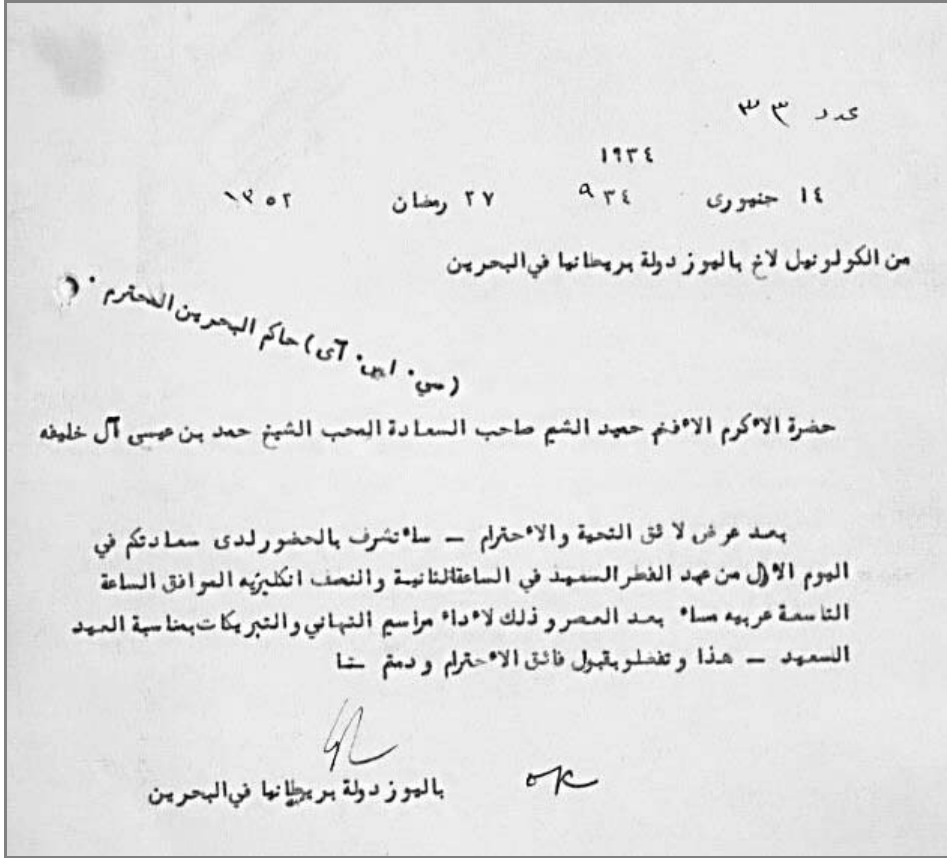 عدد ٣٣
١٩٣٤
١٤ جنيورى ٩٣٤ ٢٧ رمضان ١٣٥٢
من الكولونيل لاخ باليوز دولة بريطانيا في البحرين
(سي. اين. آى) حاكم البحرين المحترم.
حضرة الاكرم الافخم حميد الشيم صاحب السعادة المحب الشيخ حمد بن عيسى آل خليفه
بعد عرض لائق التحية والاحترام – سأتشرف بالحضور لدى سعادتكم في
اليوم الاول من عيد الفطر السعيد في الساعة الثانية والنصف انكليزيه الموافق الساعة
التاسعة عربيه مساء بعد العصر و ذلك لاداء مراسيم التهاني والتبريكات بمناسبة العيد
السعيد – هذا و تفضلو بقبول فائق الاحترام و دمتم
باليوز دولة بريطانيا في البحرين